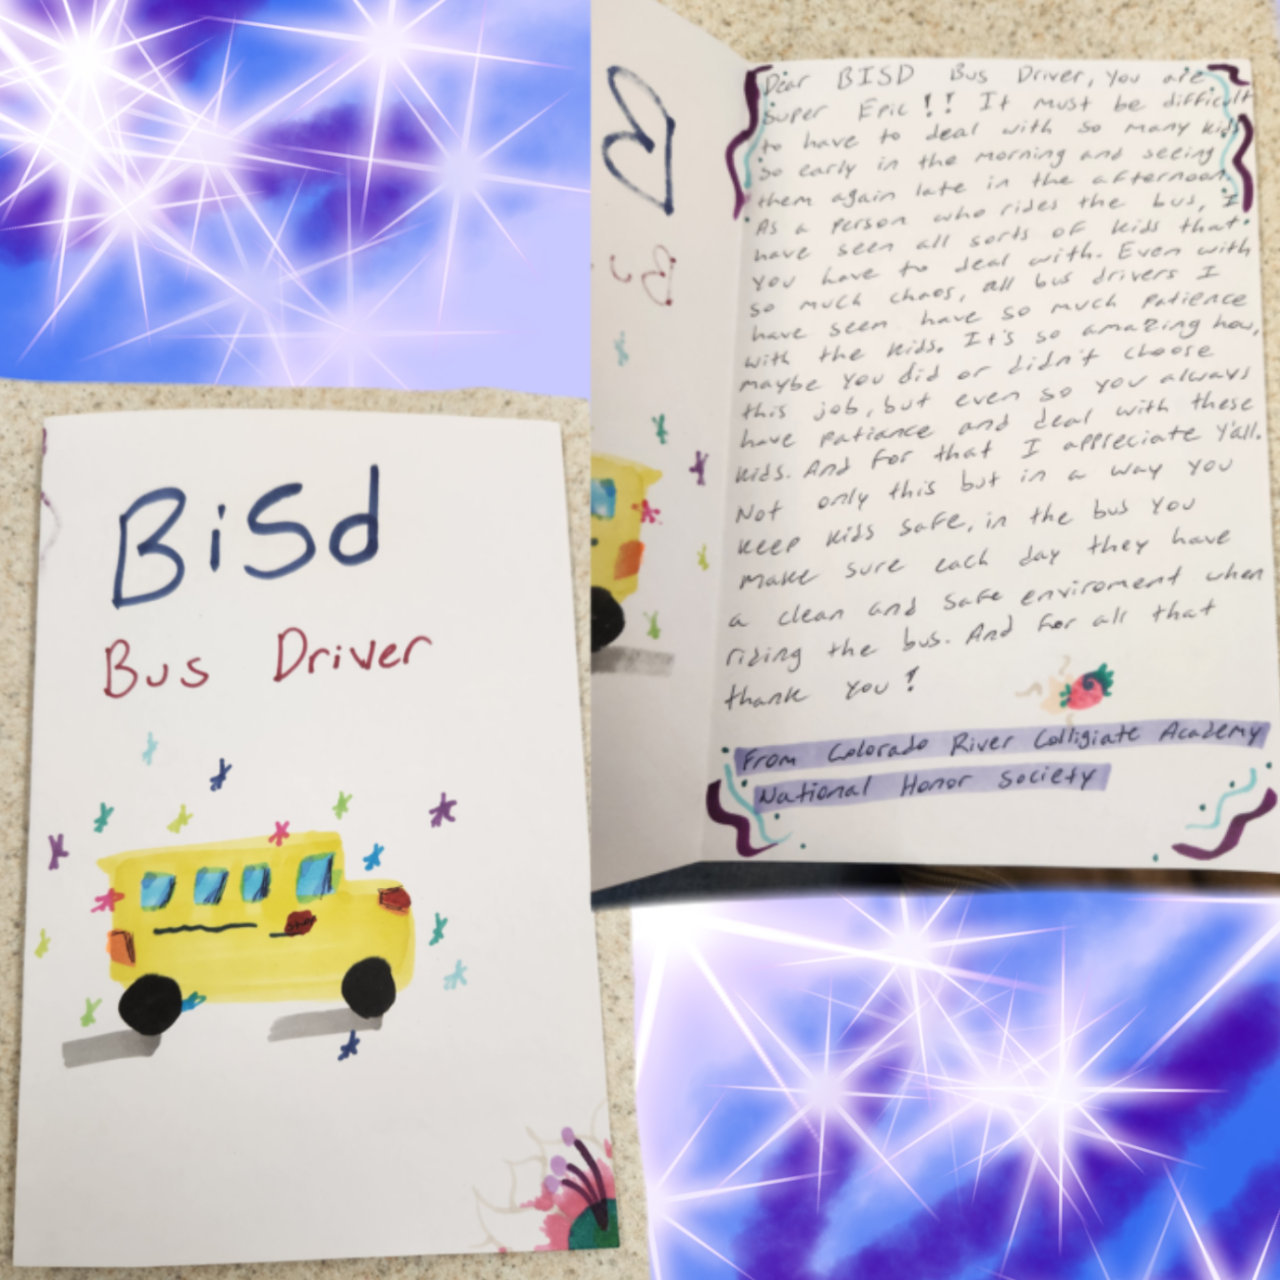 BiSd
Bus Driver
Dear BISD Bus Driver, You are
Super Epic!! It must be difficult
to have to deal with so many kids
so early in the morning and seeing
them again late in the afternoon.
As a person who rides the bus, I
have seen all sorts of kids that
you have to deal with. Even with
so much chaos, all bus drivers I
have seen have so much patience
with the kids. It's so amazing how,
maybe you did or didn't choose
this job, but even so you always
have patiance and deal with these
kids. And for that I appreciate Y'all.
Not only this but in a way you
keep kids safe, in the bus you
make sure each day they have
a clean and safe enviroment when
riding the bus. And for all that
thank you!
From Colorado River Colligiate Academy
National Honor Society